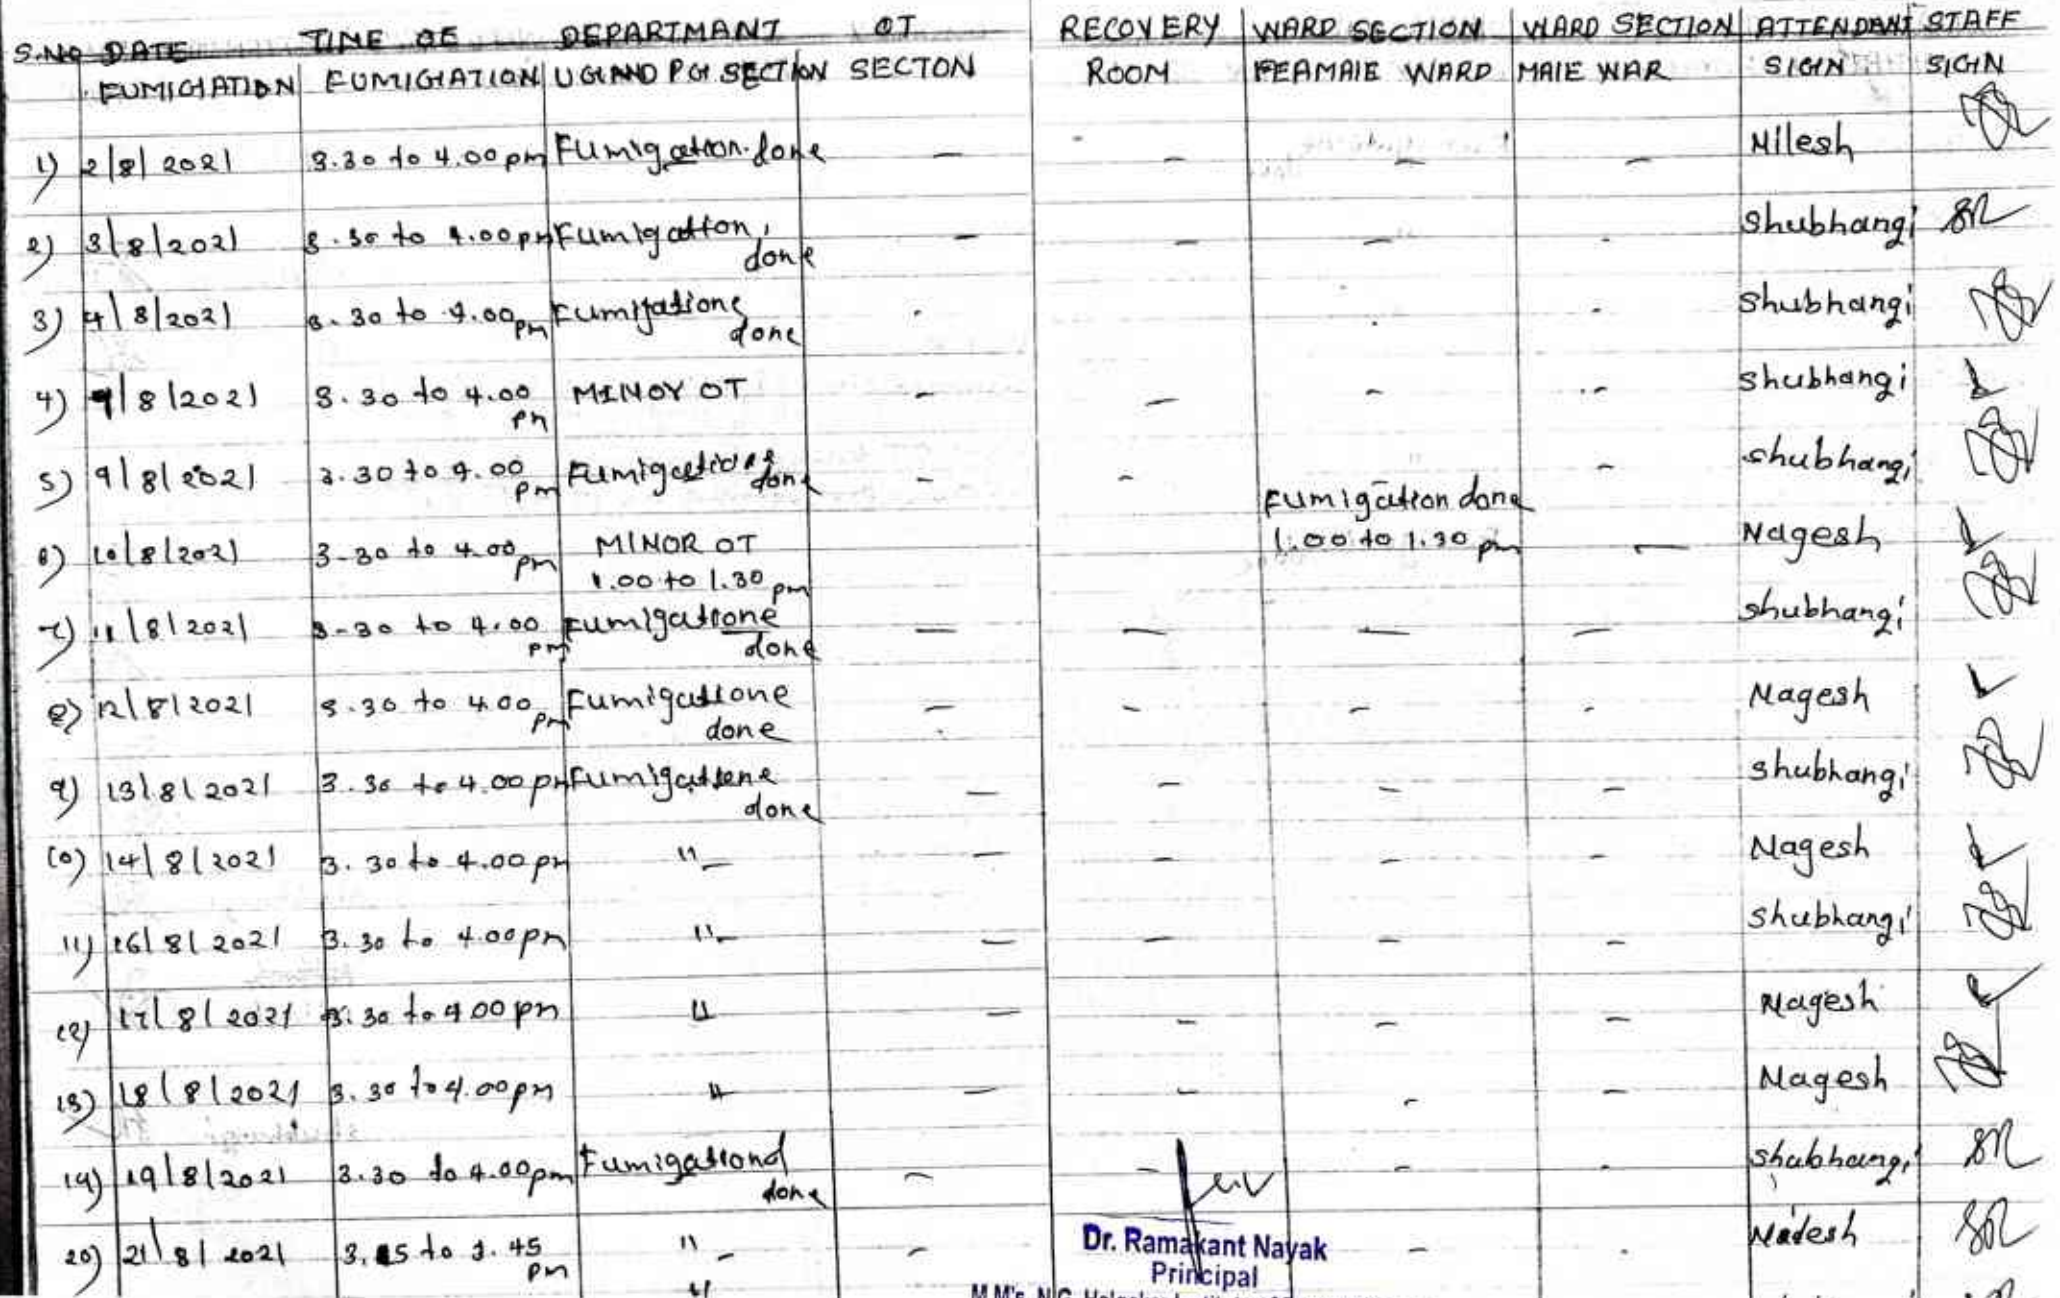 S.NO DATE TIME OF DEPARTMANT OT RECOVERY WARD SECTION WARD SECTION ATTENDANT STAFF
FUMIGATION FUMIGATION UG AND PG SECTION SECTON ROOM FEAMAIE WARD MAIE WAR SIGN SIGN
1) 2/8/2021 3.30 to 4.00 pm Fumigation done — — — — Nilesh
2) 3/8/2021 3.30 to 4.00 pm Fumigation done — — — - Shubhangi SR
3) 4/8/2021 3.30 to 4.00 pm Fumigatione done - - - Shubhangi
4) 9/8/2021 3.30 to 4.00 pm MINOY OT — — — — Shubhangi
5) 9/8/2021 3.30 to 4.00 pm Fumigatione done — — — — Shubhangi
6) 10/8/2021 3-30 to 4.00 pm MINOR OT 1.00 to 1.30 pm Fumigation done 1.00 to 1.30 pm — Nagesh
7) 11/8/2021 3-30 to 4.00 pm Fumigatione done — — — — Shubhangi
8) 12/8/2021 3.30 to 4.00 pm Fumigatione done — — — - Nagesh
9) 13/8/2021 3.30 to 4.00 pm Fumigatione done — — — — Shubhangi
10) 14/8/2021 3.30 to 4.00 pm "— — — — — Nagesh
11) 16/8/2021 3.30 to 4.00 pm "— — — — — Shubhangi
12) 17/8/2021 3.30 to 4 00 pm " — — — — Nagesh
13) 18/8/2021 3.30 to 4.00 pm " — — — — Nagesh
19) 19/8/2021 3.30 to 4.00 pm Fumigationd done — — — - Shubhangi SR
20) 21/8/2021 3.15 to 3.45 pm "— — — - SR
Dr. Ramakant Nayak
Principal